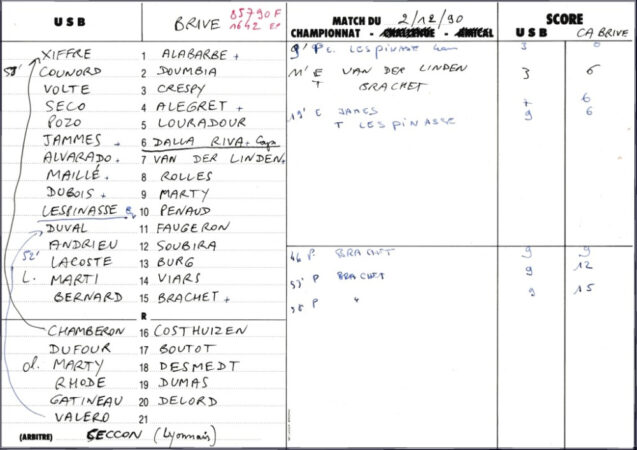 USB BRIVE 85790 F
1642 EP
MATCH DU 2/12/90
CHAMPIONNAT - CHALLENGE - AMICAL
SCORE
USB CA BRIVE
XIFFRE 1 ALABARBE +
53' COUNORD 2 DOUMBIA
VOLTE 3 CRESPY
SECO 4 ALEGRET +
POZO 5 LOURADOUR
JAMMES + 6 DALLA RIVA + Cap
ALVARADO + 7 VAN DER LINDEN +
MAILLÉ + 8 ROLLES
DUBOIS + 9 MARTY
LESPINASSE 10 PENAUD
DUVAL 11 FAUGERON
ANDRIEU 12 SOUBIRA
52' LACOSTE 13 BURG
L. MARTI 14 VIARS
BERNARD 15 BRACHET +
R
CHAMBERON 16 COSTHUIZEN
DUFOUR 17 BOUTOT
d. MARTY 18 DESMEDT
RHODE 19 DUMAS
GATINEAU 20 DELORD
VALERO 21
(ARBITRE) SECCON (Lyonnais)
9' P LESPINASSE 3 0
11' E VAN DER LINDEN 3 6
T BRACHET
7 6
19' E JAMES 9 6
T LESPINASSE
46 P. BRACHET 9 9
55' P BRACHET 9 12
58 P " 9 15